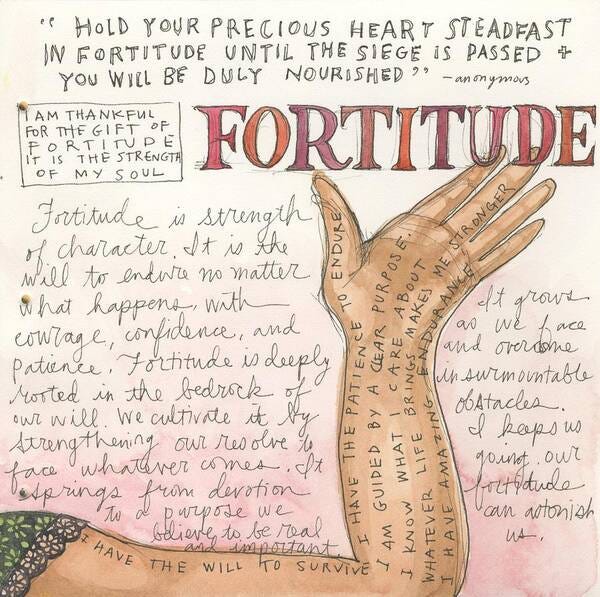 " HOLD YOUR PRECIOUS HEART STEADFAST
IN FORTITUDE UNTIL THE SIEGE IS PASSED +
YOU WILL BE DULY NOURISHED" - anonymous
I AM THANKFUL
FOR THE GIFT OF
FORTITUDE
IT IS THE STRENGTH
OF MY SOUL
FORTITUDE
Fortitude is strength
of character. It is the
will to endure no matter
what happens, with
courage, confidence, and
patience. Fortitude is deeply
rooted in the bedrock of
our will. We cultivate it by
strengthening our resolve to
face whatever comes. It
springs from devotion
to a purpose we
believe to be real
and important.
I HAVE THE PATIENCE TO ENDURE
I AM GUIDED BY A CLEAR PURPOSE.
I KNOW WHAT I CARE ABOUT
WHATEVER LIFE BRINGS MAKES ME STRONGER
I HAVE AMAZING ENDURANCE
I HAVE THE WILL TO SURVIVE
It grows
as we face
and overcome
insurmountable
obstacles.
I keeps us
going. our
fortitude
can astonish
us.